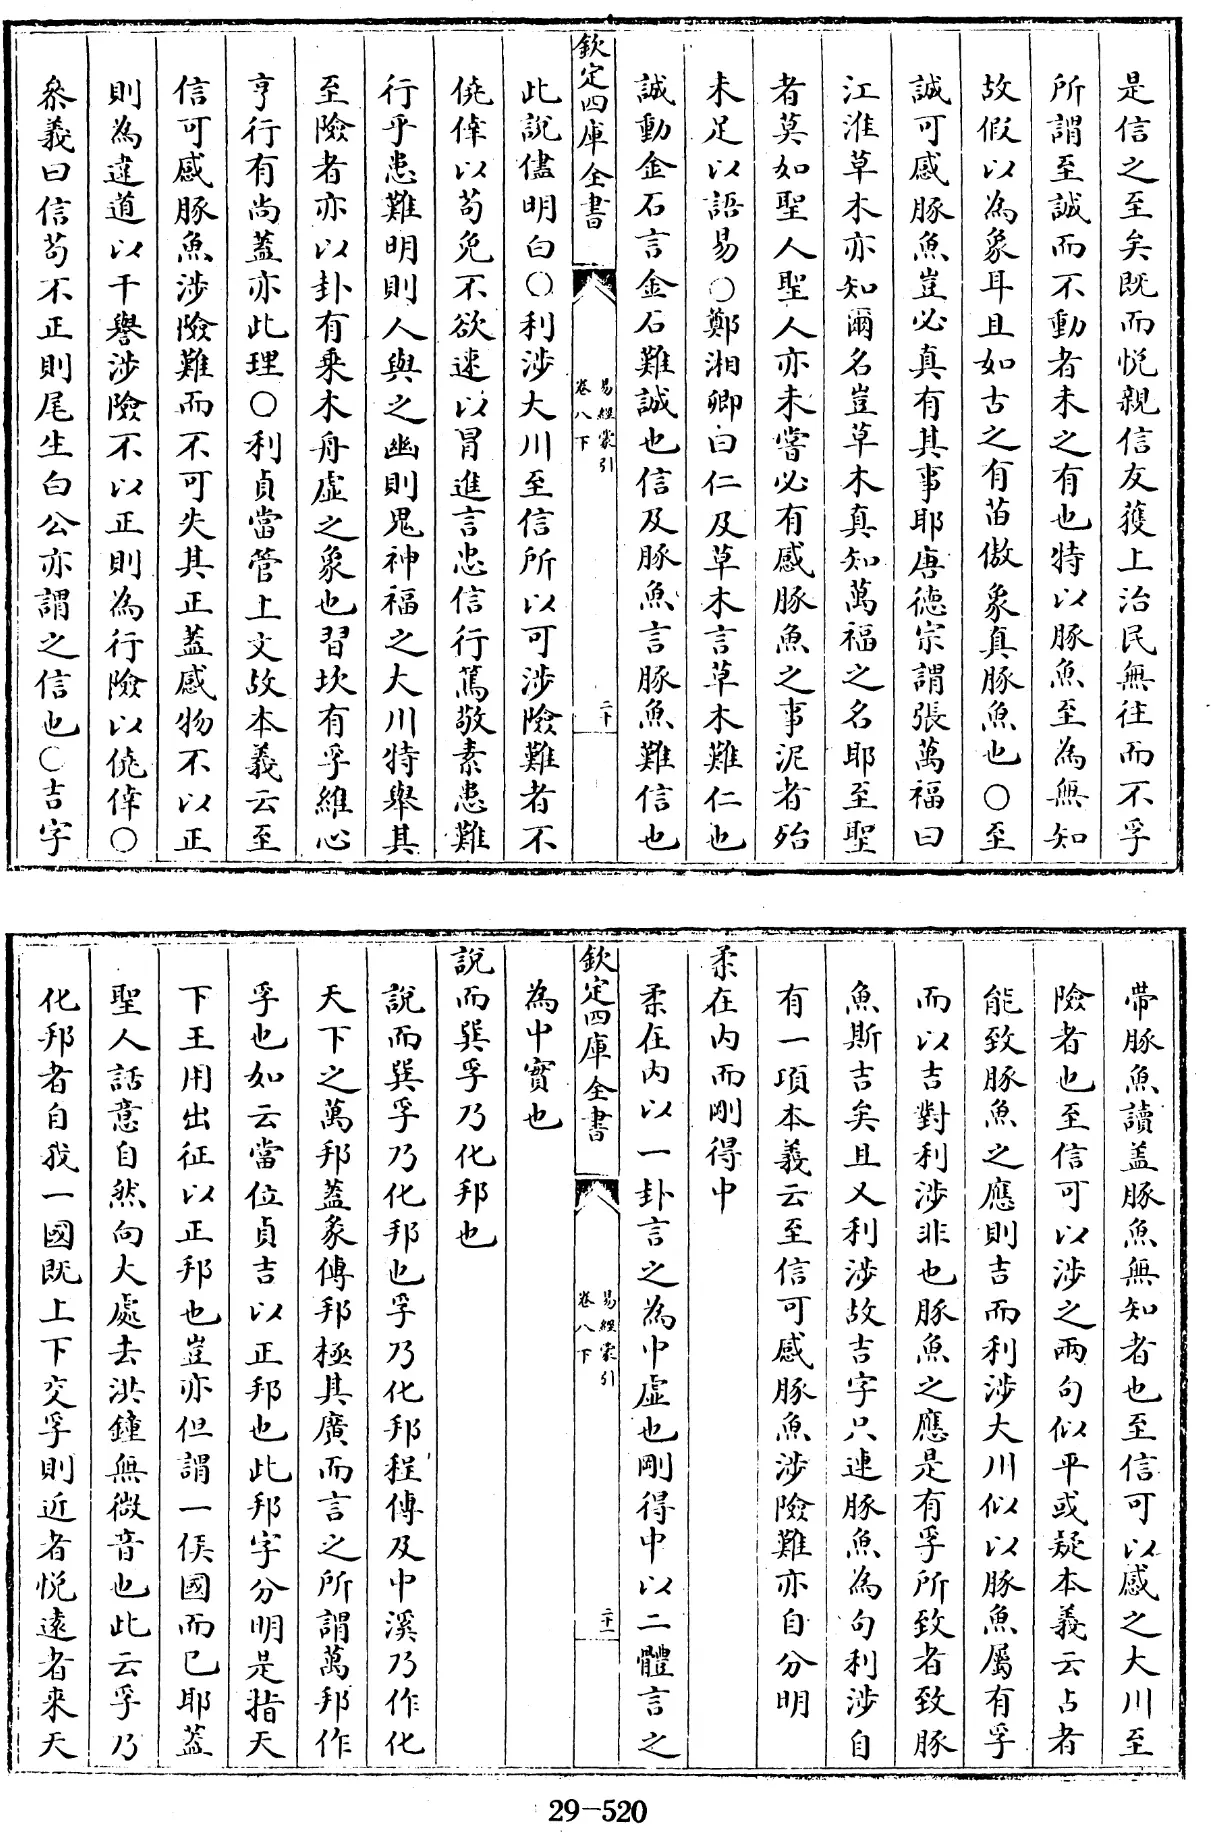 是信之至矣既而悦親信友獲上治民無往而不孚
所謂至誠而不動者未之有也特以豚魚至為無知
故假以為象耳且如古之有苗傲象真豚魚也○至
誠可感豚魚豈必真有其事耶唐德宗謂張萬福曰
江淮草木亦知爾名豈草木真知萬福之名耶至聖
者莫如聖人聖人亦未嘗必有感豚魚之事泥者殆
未足以語易○鄭湘卿曰仁及草木言草木難仁也
誠動金石言金石難誠也信及豚魚言豚魚難信也
欽定四庫全書
易經蒙引
卷八下
二十
此說儘明白○利涉大川至信所以可涉險難者不
僥倖以苟免不欲速以冒進言忠信行篤敬素患難
行乎患難明則人與之幽則鬼神福之大川特舉其
至險者亦以卦有乗木舟虛之象也習坎有孚維心
亨行有尚葢亦此理○利貞當管上文故本義云至
信可感豚魚涉險難而不可失其正葢感物不以正
則為違道以干譽涉險不以正則為行險以僥倖○
叅義曰信苟不正則尾生白公亦謂之信也○吉字
帶豚魚讀葢豚魚無知者也至信可以感之大川至
險者也至信可以涉之兩句似平或疑本義云占者
能致豚魚之應則吉而利涉大川似以豚魚屬有孚
而以吉對利涉非也豚魚之應是有孚所致者致豚
魚斯吉矣且又利涉故吉字只連豚魚為句利涉自
有一項本義云至信可感豚魚涉險難亦自分明
柔在内而剛得中
柔在内以一卦言之為中虛也剛得中以二體言之
欽定四庫全書
易經蒙引
卷八下
二十一
為中實也
説而巽孚乃化邦也
說而巽孚乃化邦也孚乃化邦程傳及中溪乃作化
天下之萬邦葢彖傳邦極其廣而言之所謂萬邦作
孚也如云當位貞吉以正邦也此邦字分明是指天
下王用出征以正邦也豈亦但謂一侯國而已耶葢
聖人話意自然向大處去洪鐘無微音也此云孚乃
化邦者自我一國既上下交孚則近者悦遠者來天
29-520